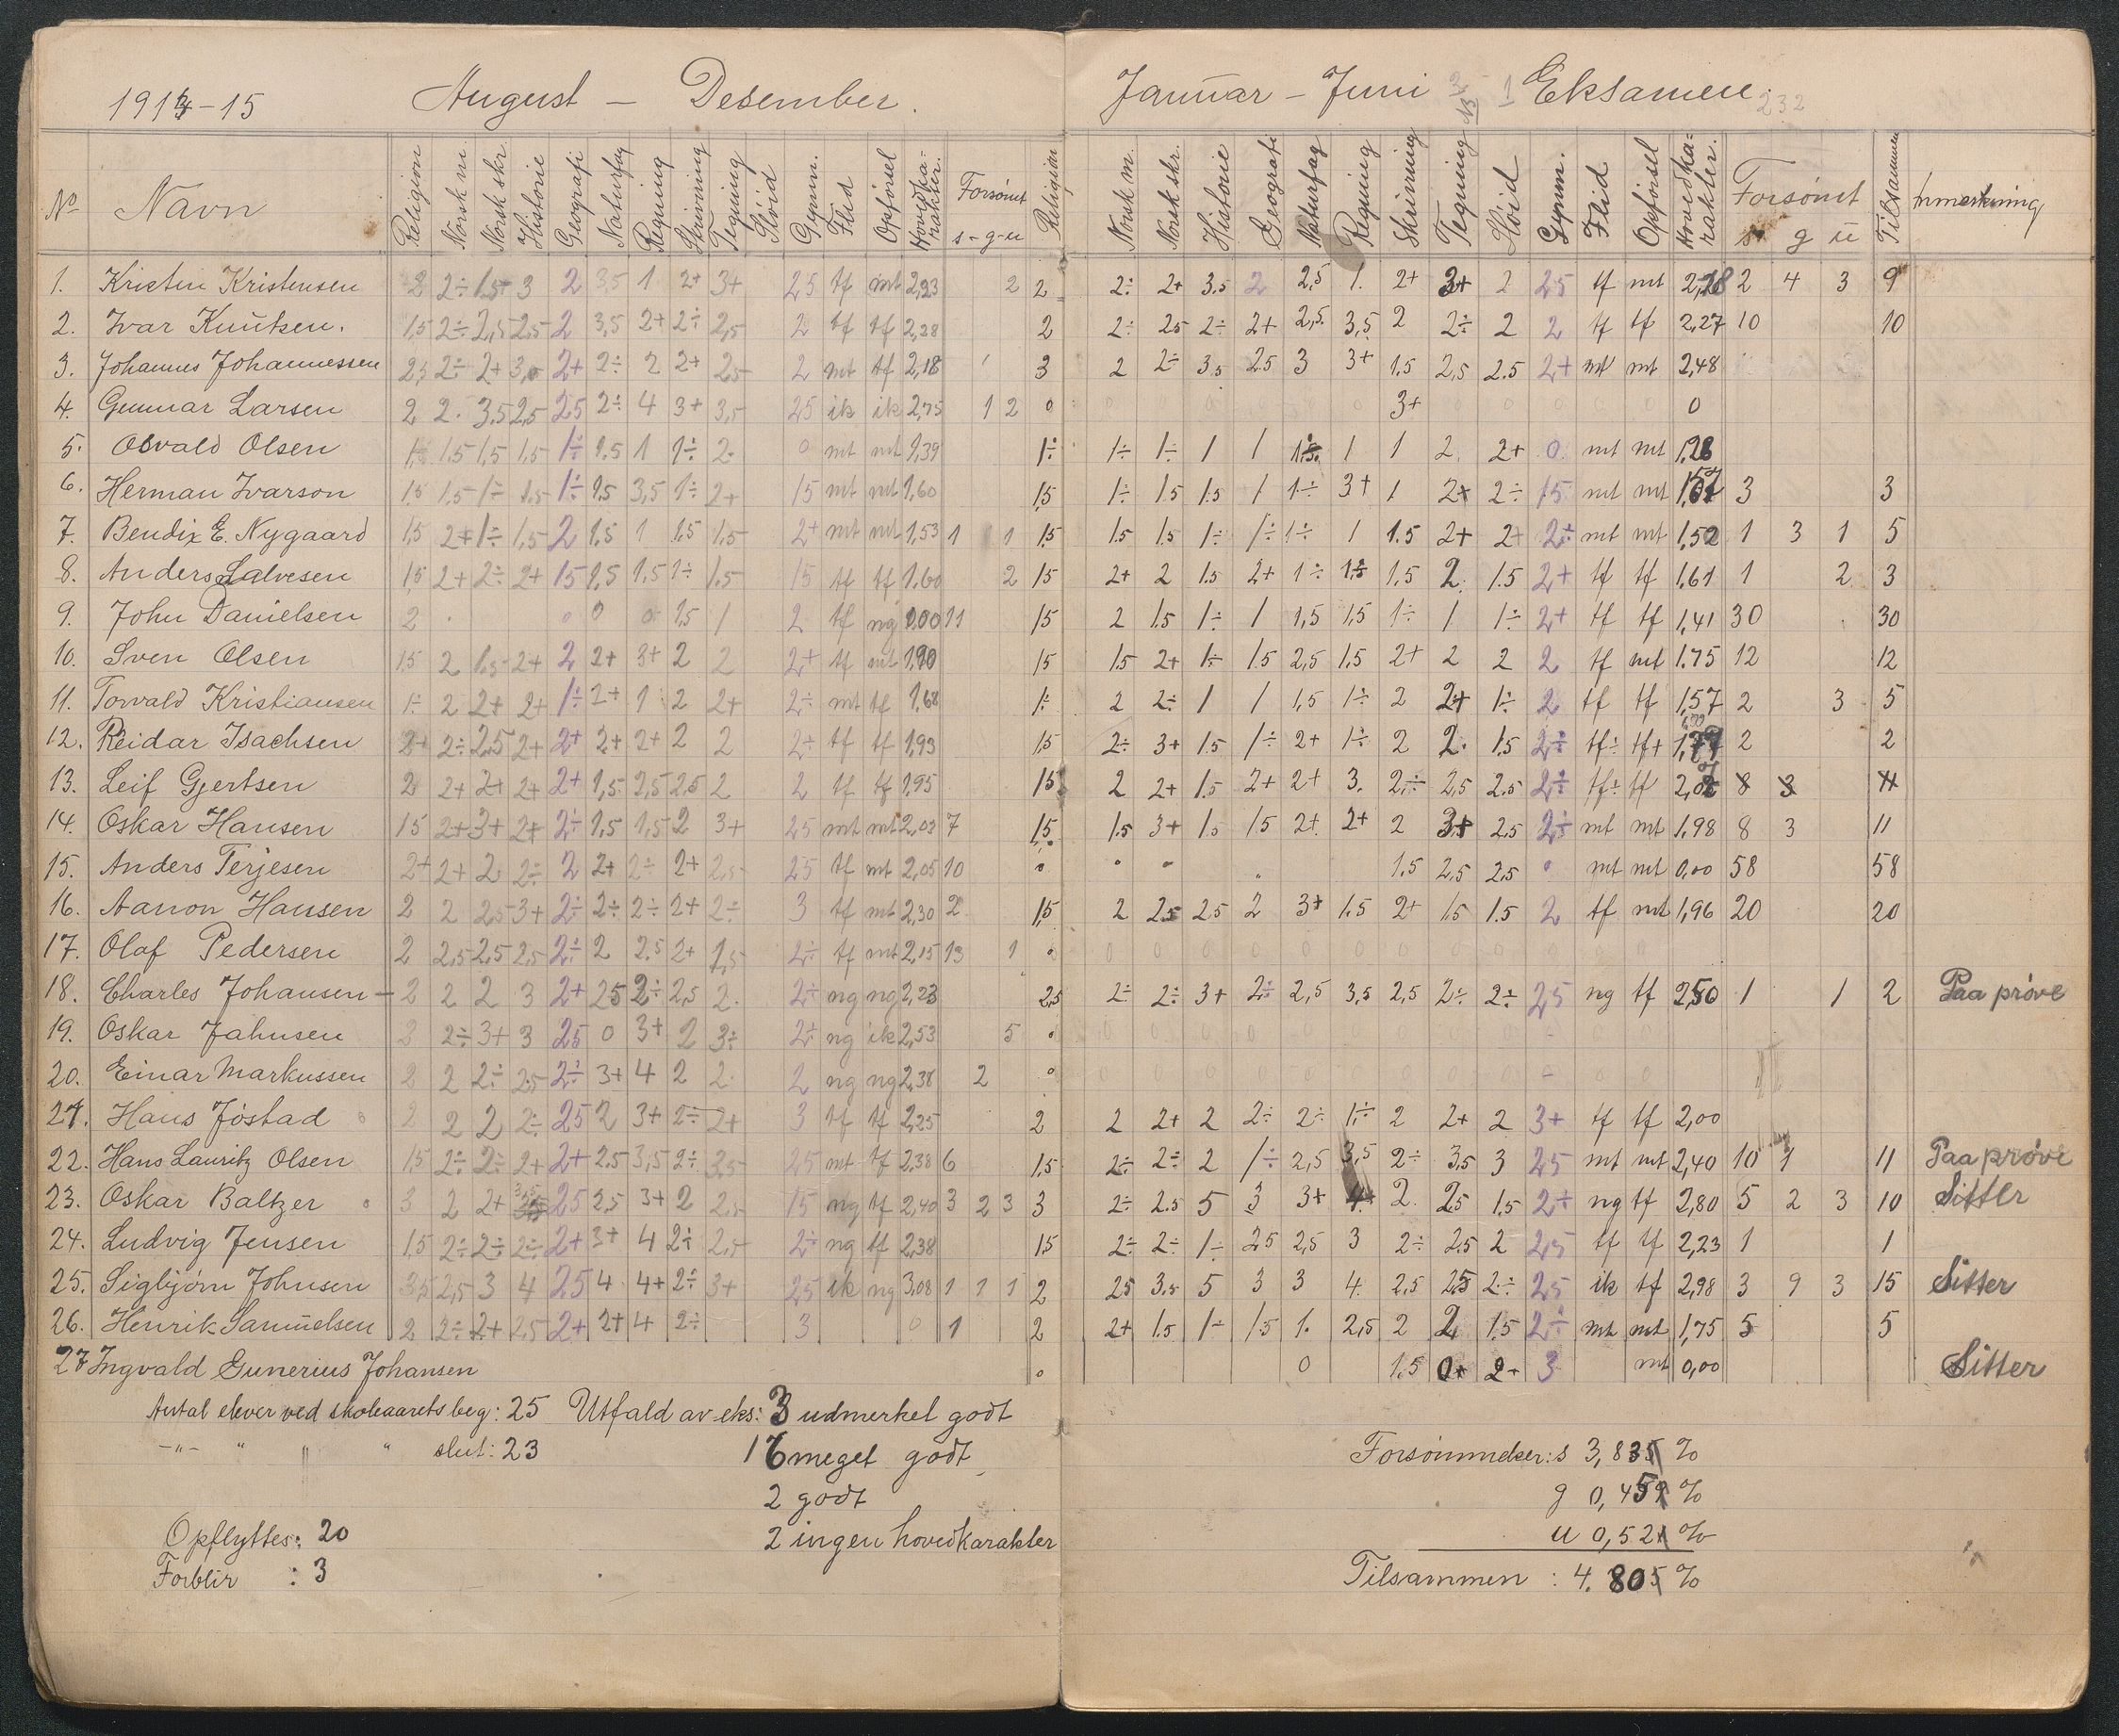 1914-15 August – Desember. Januar – Juni Eksamen.
No Navn Religion Norsk m. Norsk skr. Historie Geografi Naturfag Regning Skrivning Tegning Sløid Gymn. Flid Opførsel Hovedkarakter. Forsømt s - g - u Religion Norsk m. Norsk skr. Historie Geografi Naturfag Regning Skrivning Tegning Sløid Gymn. Flid Opførsel Hovedkarakter. Forsømt s g u Tilsammen Anmerkning
1. Kristen Kristensen 2 2÷ 1.5+ 3 2 3,5 1 2+ 3+ 25 tf mt 2,23 2 2 2÷ 2+ 3.5 2 2,5 1. 2+ 3+ 2 25 tf mt 2,28 2 4 3 9
2. Ivar Knutsen. 1,5 2÷ 2,5 2,5 2 3,5 2+ 2÷ 2,5 2 tf tf 2,28 2 2÷ 25 2÷ 2+ 2,5 3,5 2 2÷ 2 2 tf tf 2,27 10 10
3. Johannes Johannessen 2,5 2÷ 2+ 3,0 2+ 2÷ 2 2+ 2,5 2 mt tf 2,18 3 2 2÷ 3.5 2.5 3 3+ 1.5 2,5 2.5 2+ mt mt 2,48
4. Gunnar Larsen 2 2. 3.5 2,5 25 2÷ 4 3+ 3,5 25 ik ik 2,75 1 2 0 3+ 0
5. Osvald Olsen 1,5 1,5 1,5 1÷ 1,5 1 1÷ 2. 0 mt mt 1,39 1÷ 1÷ 1÷ 1 1 1 1 2. 2+ 0 mt mt 1,28
6. Herman Ivarson 15 1,5 1÷ 1,5 1÷ 1,5 3,5 1÷ 2+ 15 mt mt 1,60 1,5 1÷ 1.5 1.5 1 1÷ 3+ 1 2+ 2÷ 15 mt mt 3 3
7. Bendix E. Nygaard 1,5 2+ 1÷ 1,5 2 1,5 1 1,5 1,5 2+ mt mt 1,53 1 1 1,5 1.5 1.5 1÷ 1÷ 1÷ 1 1.5 2+ 2+ 2÷ mt mt 1,52 1 3 1 5
8. Anders Salvesen 1,5 2+ 2÷ 2+ 15 1,5 1,5 1÷ 1.5 15 tf tf 1.60 2 15 2+ 2 1.5 2+ 1÷ 1,5 1,5 2. 1.5 2+ tf tf 1,61 1 2 3
9. John Danielsen 2 0 0 0 1,5 1 2 tf ng 0,00 11 15 2 1.5 1÷ 1 1,5 1,5 1÷ 1 1÷ 2+ tf tf 1,41 30 30
10. Sven Olsen 1.5 2 1.5 2+ 2 2+ 3+ 2 2 2+ tf mt 1,90 15 1.5 2+ 1÷ 1.5 2,5 1.5 2+ 2 2 2 tf mt 1.75 12 12
11. Torvald Kristiansen 1÷ 2 2+ 2+ 1÷ 2+ 1 2 2+ 2÷ mt tf 1,68 1÷ 2 2÷ 1 1 1,5 1÷ 2 2+ 1÷ 2 tf tf 1,57 2 3 5
12. Reidar Isachsen 2+ 2÷ 2,5 2+ 2+ 2+ 2+ 2 2 2÷ tf tf 1,93 1,5 2÷ 3+ 1.5 1÷ 2+ 1÷ 2 2. 1.5 2÷ tf÷ tf+ 2 2
13. Leif Gjertsen 2 2+ 2+ 2+ 2+ 1,5 2,5 2,5 2 2 tf tf 1,95 15 2 2+ 1.5 2+ 2+ 3. 2÷ 2,5 2.5 2÷ tf÷ tf
14. Oskar Hansen 15 2+ 3+ 2+ 2÷ 1,5 1,5 2 3+ 25 mt mt 2,03 7 1,5 1.5 3+ 1.5 15 2+ 2+ 2 3+ 2.5 2÷ mt mt 1.98 8 3 11
15. Anders Terjesen 2+ 2+ 2 2÷ 2 2+ 2÷ 2+ 2,5 25 tf mt 2,05 10 0 1.5 2,5 2.5 mt mt 0,00 58 58
16. Aanon Hansen 2 2 2,5 3+ 2÷ 2÷ 2÷ 2+ 2÷ 3 tf mt 2,30 2 1,5 2 2.5 2.5 2 3+ 1.5 2+ 1.5 1.5 2 tf mt 1,96 20 20
17. Olaf Pedersen 2 2,5 2,5 2,5 2÷ 2 2.5 2+ 1,5 2÷ tf mt 2,15 13 1 0 0 0 0 0 0 0 0 0 0
18. Charles Johansen – 2 2 2 3 2+ 25 2÷ 2,5 2. 2÷ ng ng 2,23 2,5 2÷ 2÷ 3+ 2÷ 2,5 3,5 2,5 2÷ 2÷ 25 ng tf 2,50 1 1 2 Paa prøve
19. Oskar Jahnsen 2 2÷ 3+ 3 25 0 3+ 2 3÷ 2+ ng ik 2,53 5 0
20. Einar Markussen 2 2 2÷ 2.5 2÷ 3+ 4 2 2. 2 ng ng 2,38 2 0
21. Hans Jøstad 2 2 2 2÷ 25 2 3+ 2÷ 2+ 3 tf tf 2,25 2 2 2+ 2 2÷ 2÷ 1÷ 2 2+ 2 3+ tf tf 2,00
22. Hans Lauritz Olsen 1,5 2÷ 2÷ 2+ 2+ 2.5 3,5 2÷ 3,5 25 mt tf 2,38 6 1,5 2÷ 2÷ 2 1÷ 2,5 3,5 2÷ 3.5 3 25 mt mt 2,40 10 1 11 Paa prøve
23. Oskar Baltzer 3 2 2+ 25 2,5 3+ 2 2,5 15 ng tf 2,40 3 2 3 3 2÷ 2.5 5 3 3+ 4+ 2. 2,5 1.5 2+ ng tf 2,80 5 2 3 10 Sitter
24. Ludvig Jensen 1,5 2÷ 2÷ 2÷ 2+ 3+ 4 2÷ 2,5 2÷ ng tf 2,38 1,5 2÷ 2÷ 1÷ 2.5 2,5 3 2÷ 2.5 2 2,5 tf tf 2,23 1 1
25. Sigbjørn Johnsen 3,5 2,5 3 4 25 4 4+ 2÷ 3+ 25 ik ng 3,08 1 1 1 2 25 3.5 5 3 3 4. 2.5 2.5 2÷ 25 ik tf 2,98 3 9 3 15 Sitter
26. Henrik Samuelsen 2 2÷ 2+ 2,5 2+ 2+ 4 2÷ 3 0 1 2 2+ 1.5 1÷ 1.5 1. 2,5 2 2 1.5 2÷ mt mt 1,75 5 5
27 Ingvald Gunerius Johansen 0 0 1.5 0+ 2+ 3 mt 0,00 Sitter
Antal elever ved skoleaarets beg: 25 Utfald av eks: 3 udmerket godt
–"– " " " slut: 23 16 meget godt
2 godt
2 ingen hovedkarakter
Opflyttes: 20
Forblir : 3
Forsømmelser: s 3,835 %
g 0,45 %
u 0,52 %
Tilsammen : 4.805 %